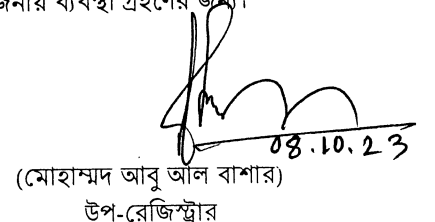 ব্যবস্থা গ্রহণের জন্য।
08.10.23
(মোহাম্মদ আবু আল বাশার)
উপ-রেজিস্ট্রার